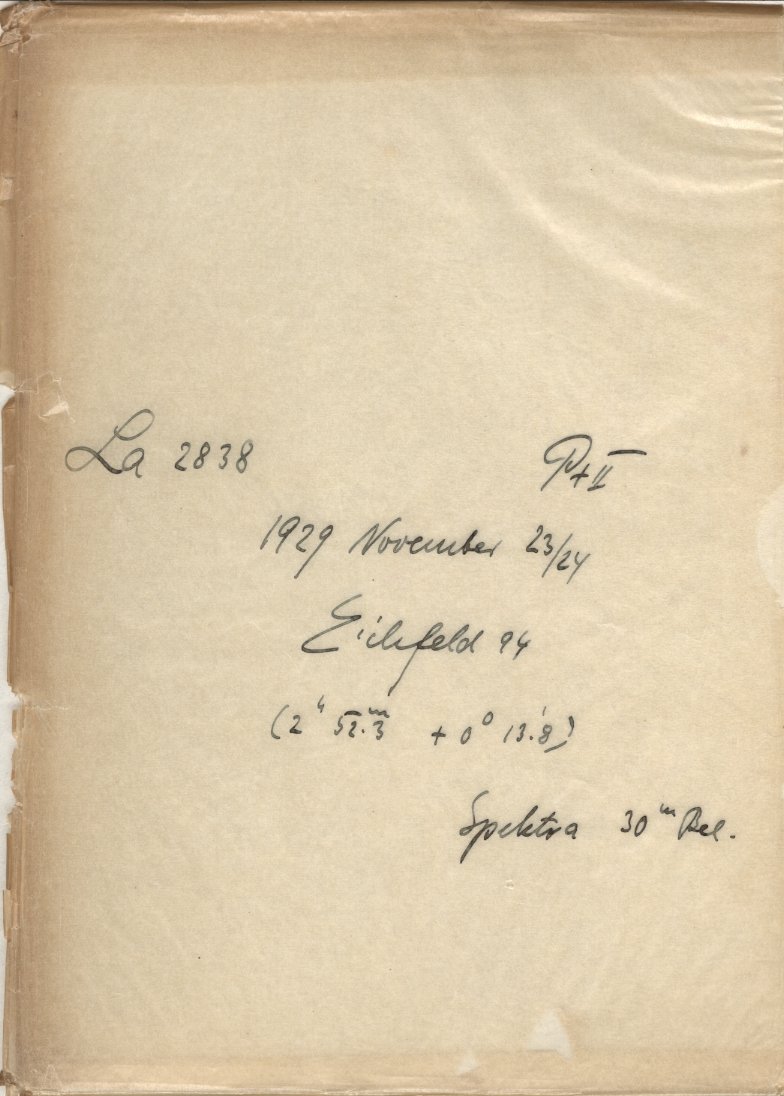 La 2838 Pt II
1929 November 23/24
Eichfeld 94
(2ʰ 52.ᵐ3 + 0° 13.'8)
Spektra 30ᵐ Bel.